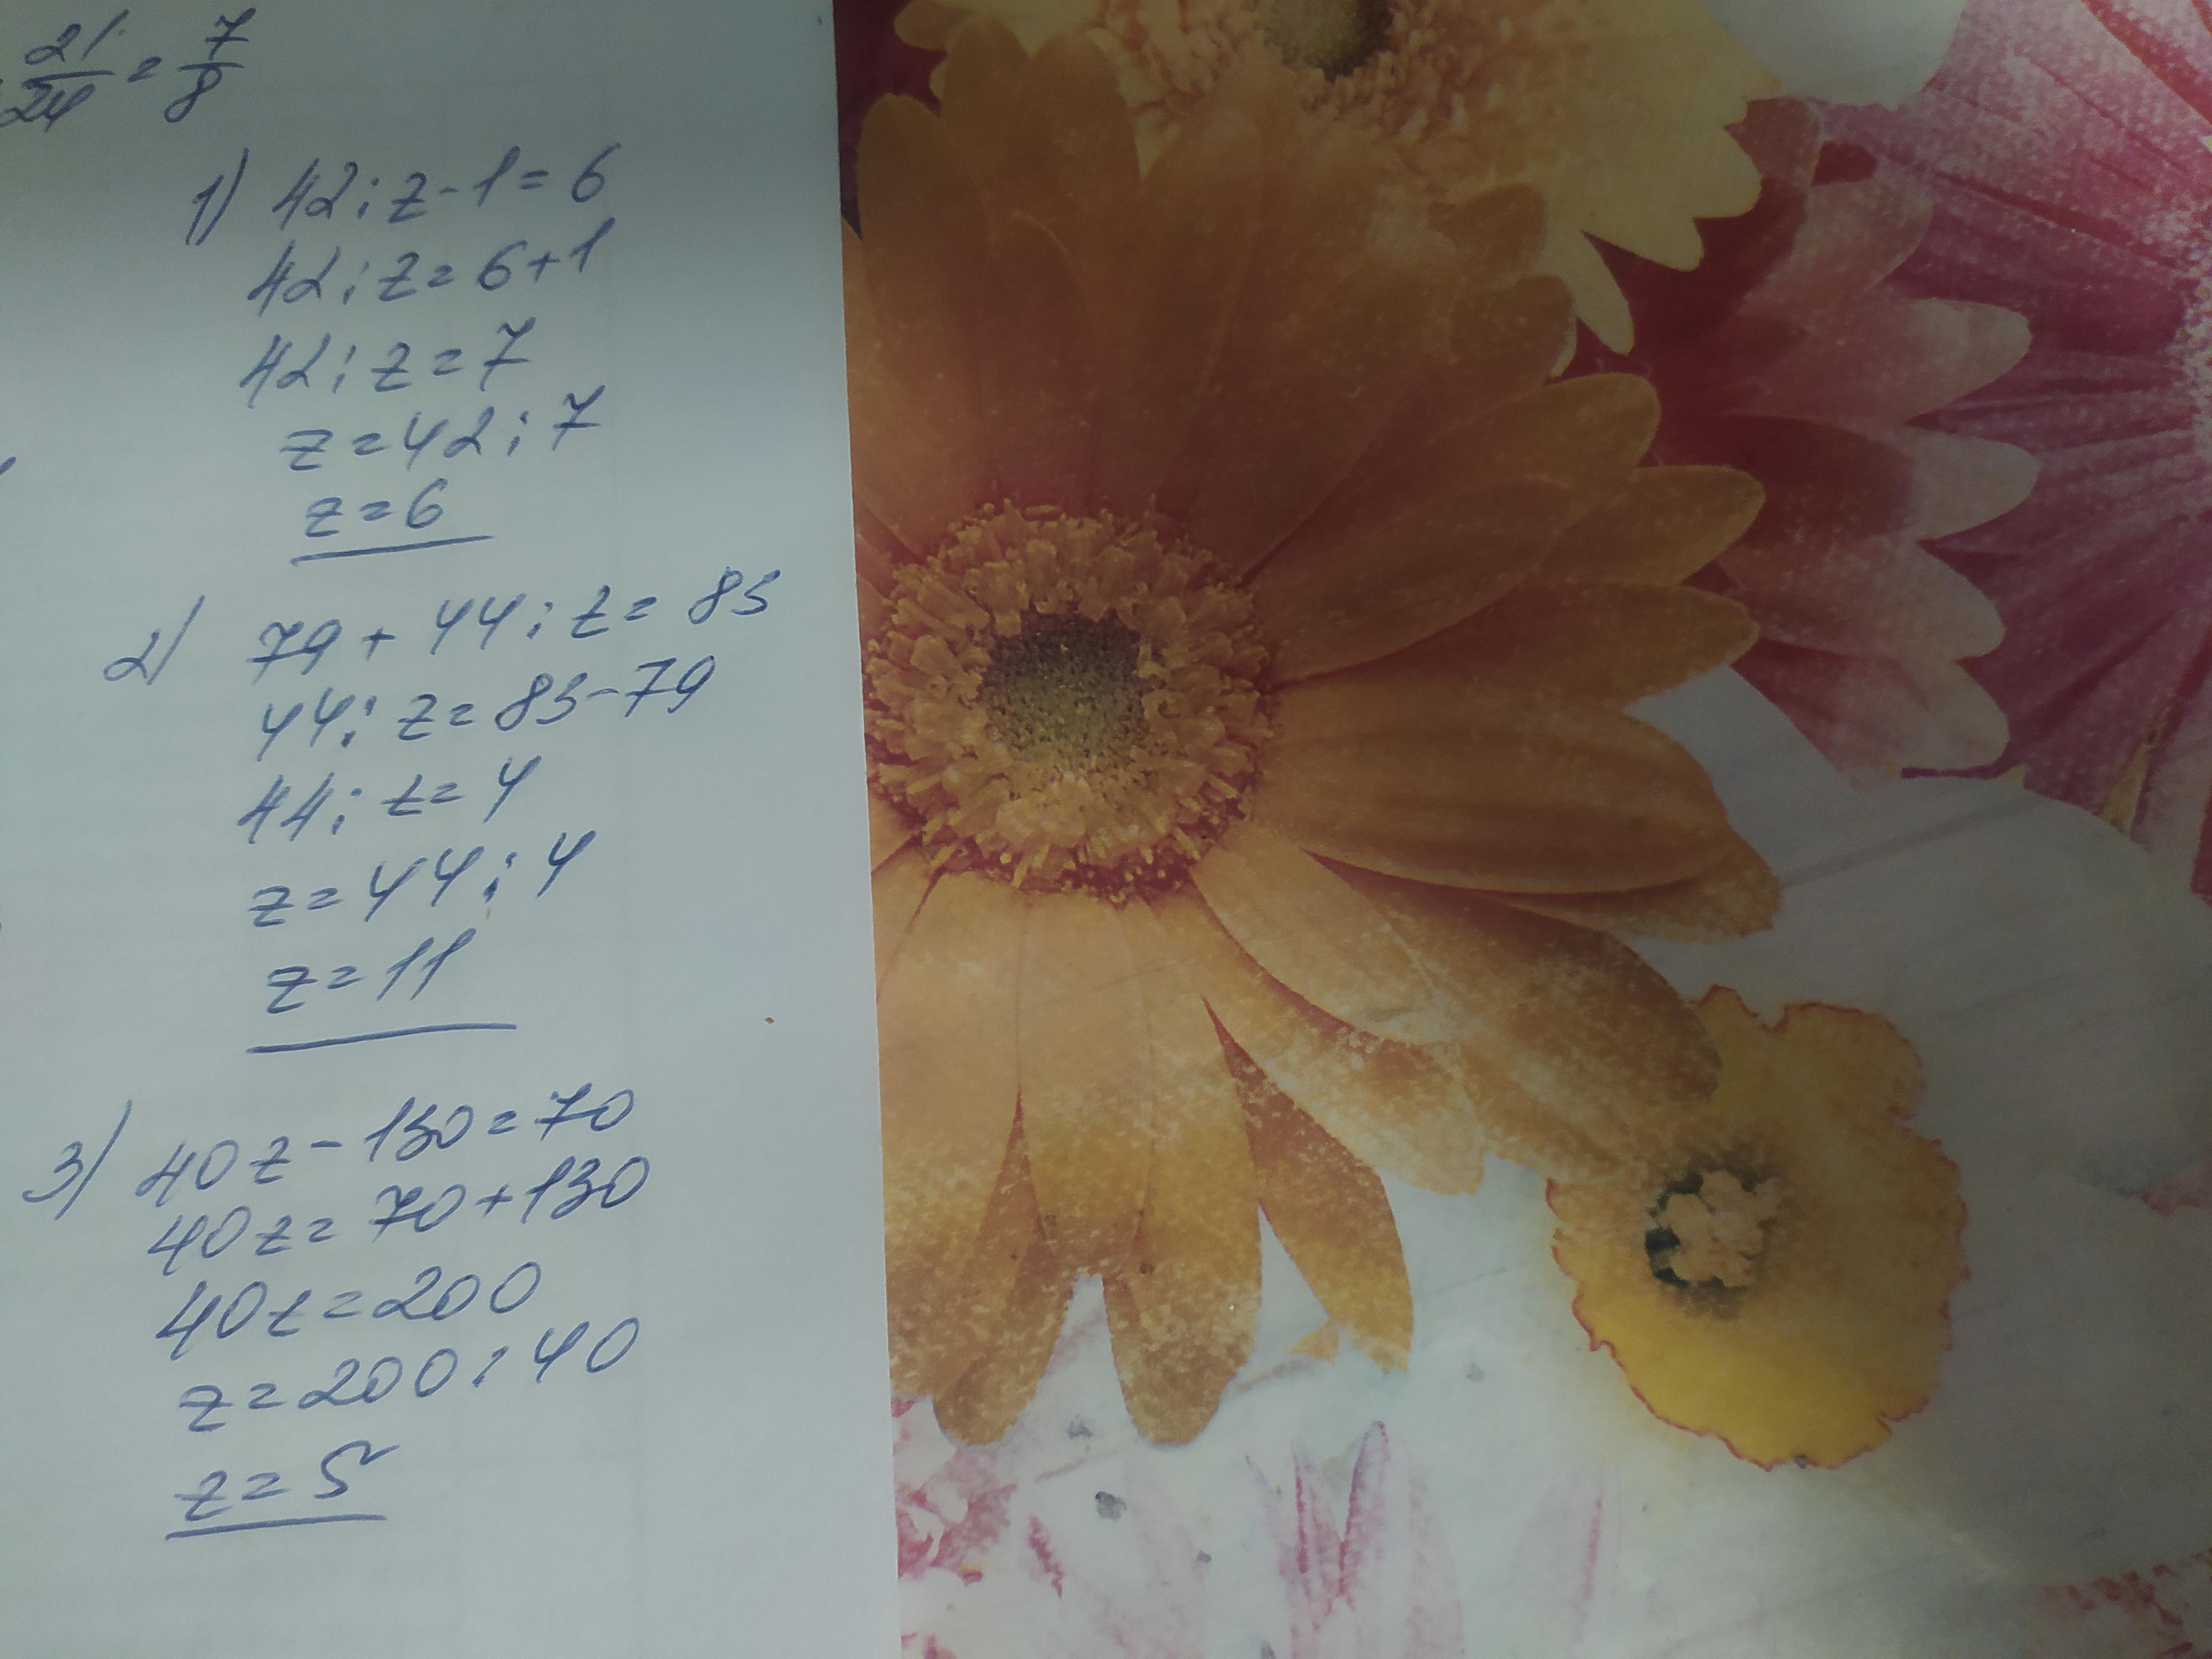 21/24 = 7/8
1) 42 : z - 1 = 6
42 : z = 6 + 1
42 : z = 7
z = 42 : 7
z = 6
2) 79 + 44 : z = 83
44 : z = 83 - 79
44 : z = 4
z = 44 : 4
z = 11
3) 40z - 130 = 70
40z = 70 + 130
40z = 200
z = 200 : 40
z = 5